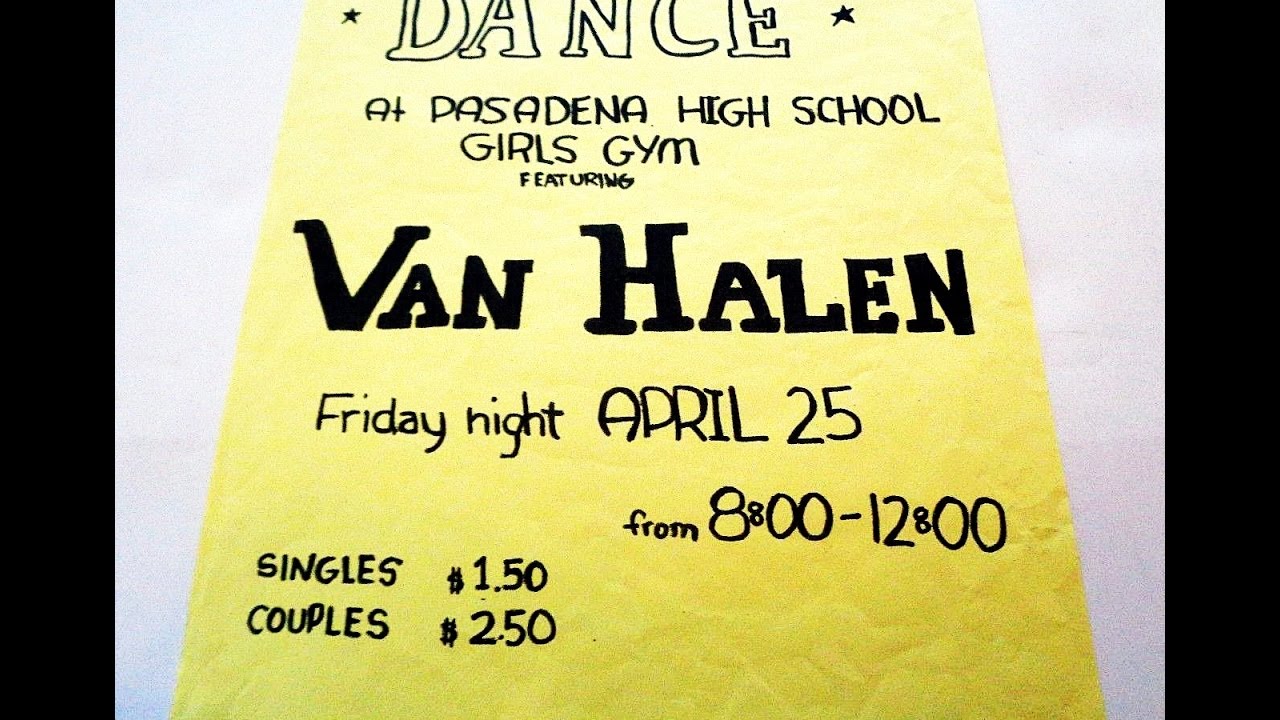 * DANCE *
At PASADENA HIGH SCHOOL
GIRLS GYM
FEATURING
VAN HALEN
Friday night APRIL 25
from 8:00-12:00
SINGLES $1.50
COUPLES $2.50